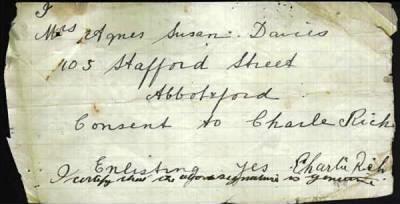 I
Mrs Agnes Susan Davies
105 Stafford Street
Abbotsford
Consent to Charle Rich
Enlisting yes Charlie Rich
I certify that the above signature is genuine